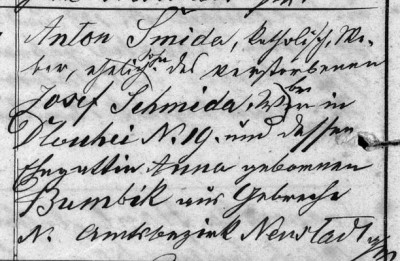 Anton Smida, katholisch, We-
ber, ehelich. Sohn des verstorbenen
Josef Schmida, Weber in
Dlouhei N. 19. und dessen
Ehegattin Anna gebornen
Bumbik aus Gebreche
N. Amtsbezirk Neustadtl